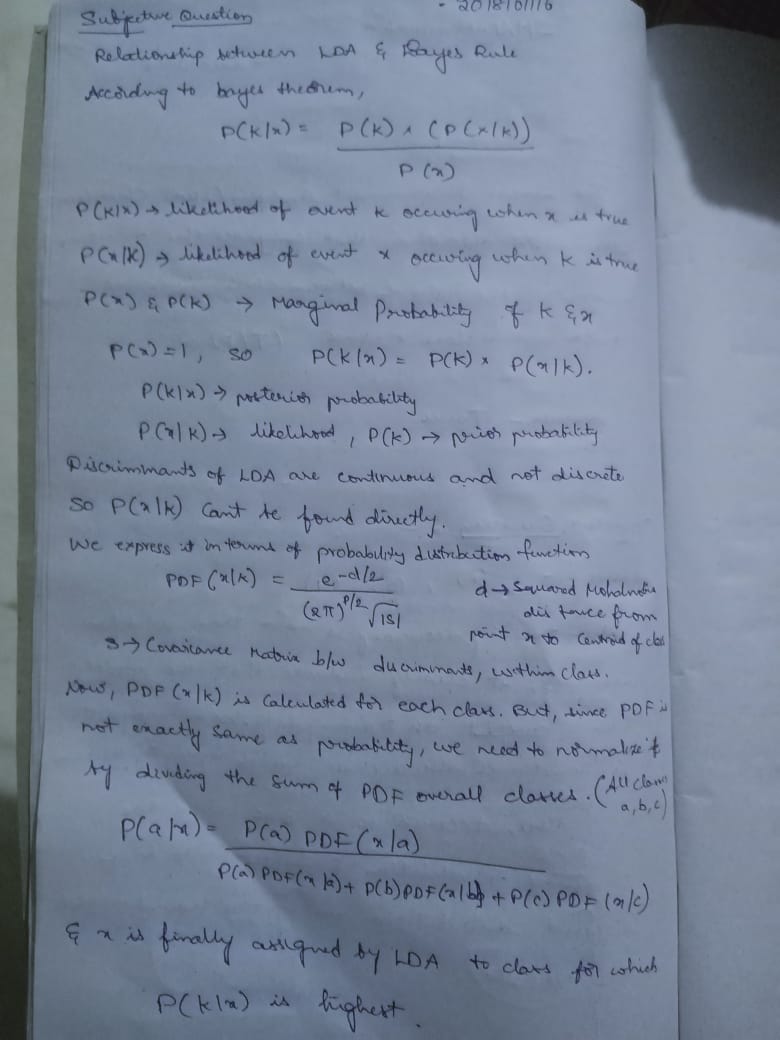 - 2018101116
Subjective Question
Relationship between LDA & Bayes Rule
According to bayes theorem,
P(k|x) = P(k) x (P(x|k))
P(x)
P(k|x) → likelihood of event k occuring when x is true
P(x|k) → likelihood of event x occuring when k is true
P(x) & P(k) → Marginal Probability of k & x
P(x) = 1, so P(k|x) = P(k) x P(x|k).
P(k|x) → posterior probability
P(x|k) → likelihood, P(k) → prior probability
Discriminants of LDA are continuous and not discrete
so P(x|k) cant be found directly.
We express it in terms of probability distribution function
PDF(x|k) = e^-d/2
(2π)^p/2 √|S|
d → Squared
distance from
point x to centroid of class
S → Covariance Matrix b/w discriminants, within class.
Now, PDF(x|k) is calculated for each class. But, since PDF is
not exactly same as probability, we need to normalize it
by dividing the sum of PDF overall classes. (All classes
a, b, c)
P(a|x) = P(a) PDF(x|a)
P(a) PDF(x|a) + P(b) PDF(x|b) + P(c) PDF(x|c)
& x is finally assigned by LDA to class for which
P(k|x) is highest.